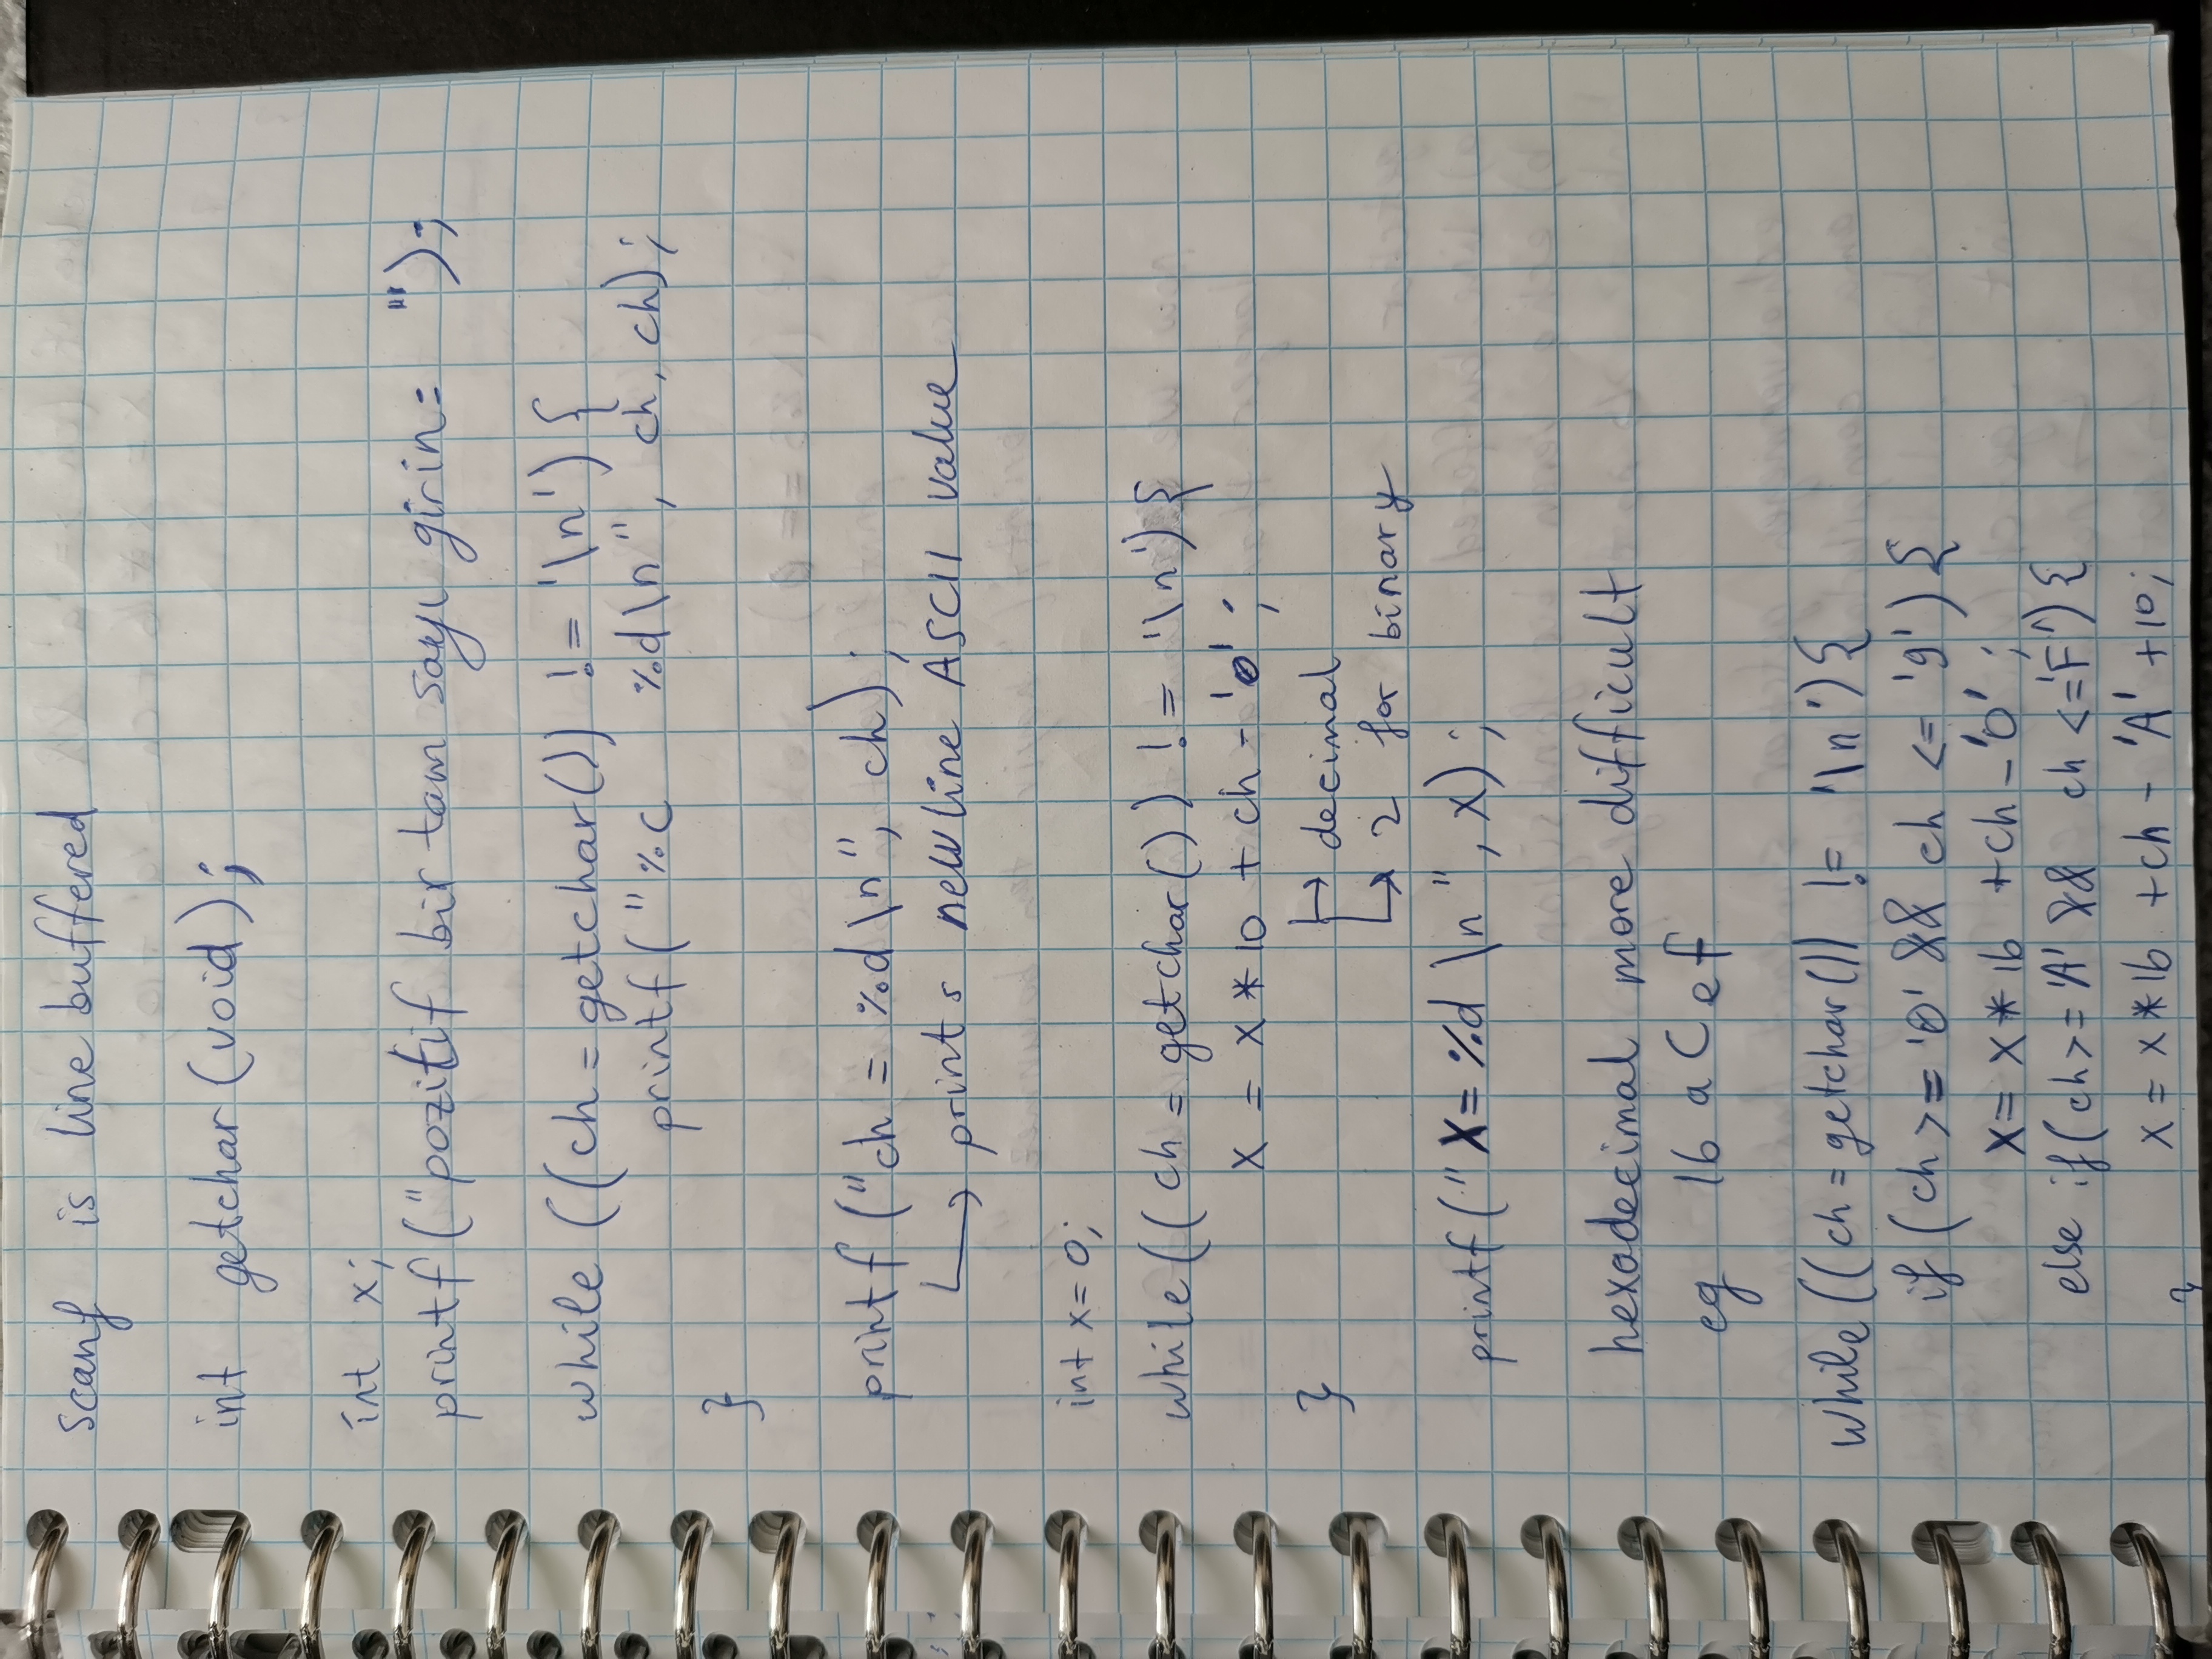 scanf is line buffered
int getchar(void);
int x;
printf("pozitif bir tam sayı girin: ");
while ((ch = getchar()) != '\n') {
printf("%c %d\n", ch, ch);
}
printf("ch = %d\n", ch);
↳ prints newline ASCII value
int x = 0;
while ((ch = getchar()) != '\n') {
x = x * 10 + ch - '0';
} → decimal
↳ 2 for binary
printf("X = %d \n", x);
hexadecimal more difficult
eg 16 a C e f
while ((ch = getchar()) != '\n') {
if (ch >= '0' && ch <= '9') {
x = x * 16 + ch - '0';
else if (ch >= 'A' && ch <= 'F') {
x = x * 16 + ch - 'A' + 10;
}